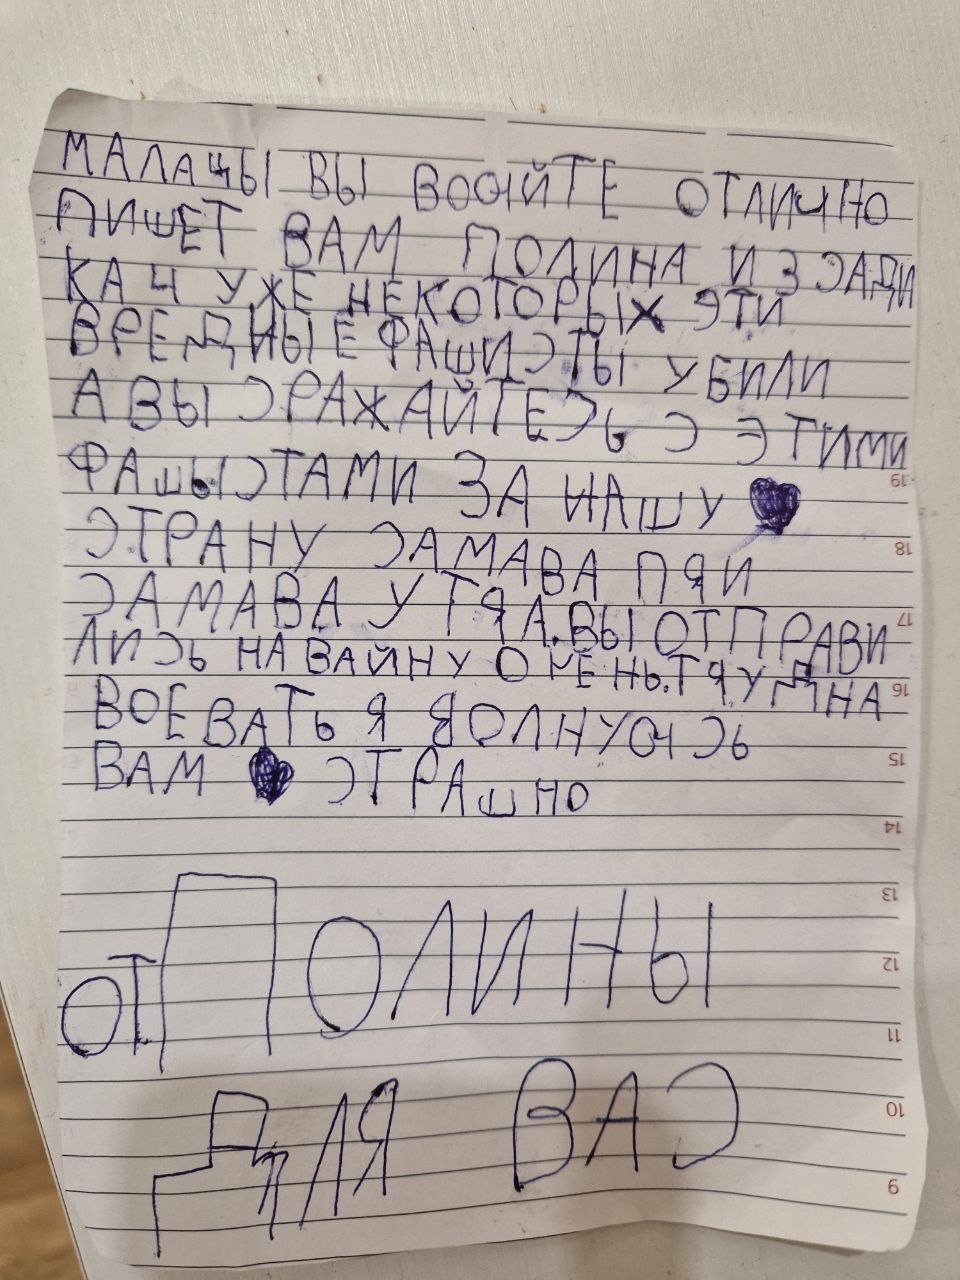 МАЛАЦЫ ВЫ ВОЮЙТЕ ОТЛИЧНО
ПИШЕТ ВАМ ПОЛИНА ИЗ САДИ
КА Ч УЖЕ НЕКОТОРЫХ ЭТИ
ВРЕДНЫЕ ФАШИСТЫ УБИЛИ
А ВЫ СРАЖАЙТЕСЬ С ЭТИМИ
ФАШЫСТАМИ ЗА НАШУ
СТРАНУ САМАВА ПЯИ
САМАВА УТЯА.ВЫ ОТПРАВИ
ЛИСЬ НА ВАЙНУ ОЧЕНЬ.ТЯУДНА
ВОЕВАТЬ Я ВОЛНУЮСЬ
ВАМ СТРАШНО
ОТ ПОЛИНЫ
ДЛЯ ВАС
19
18
17
16
15
14
13
12
11
10
9